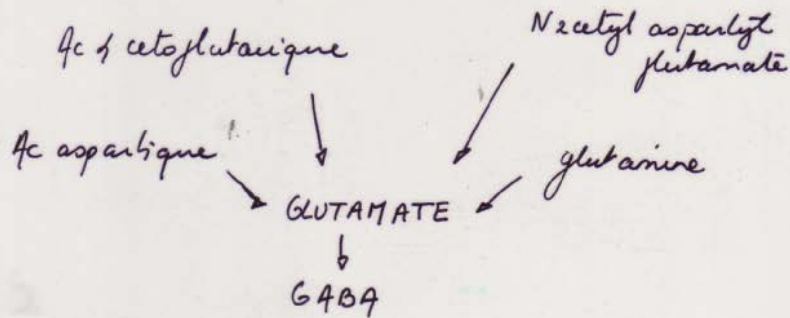 Ac α cetoglutarique
N acetyl aspartyl
glutamate
Ac aspartique
glutamine
GLUTAMATE
GABA